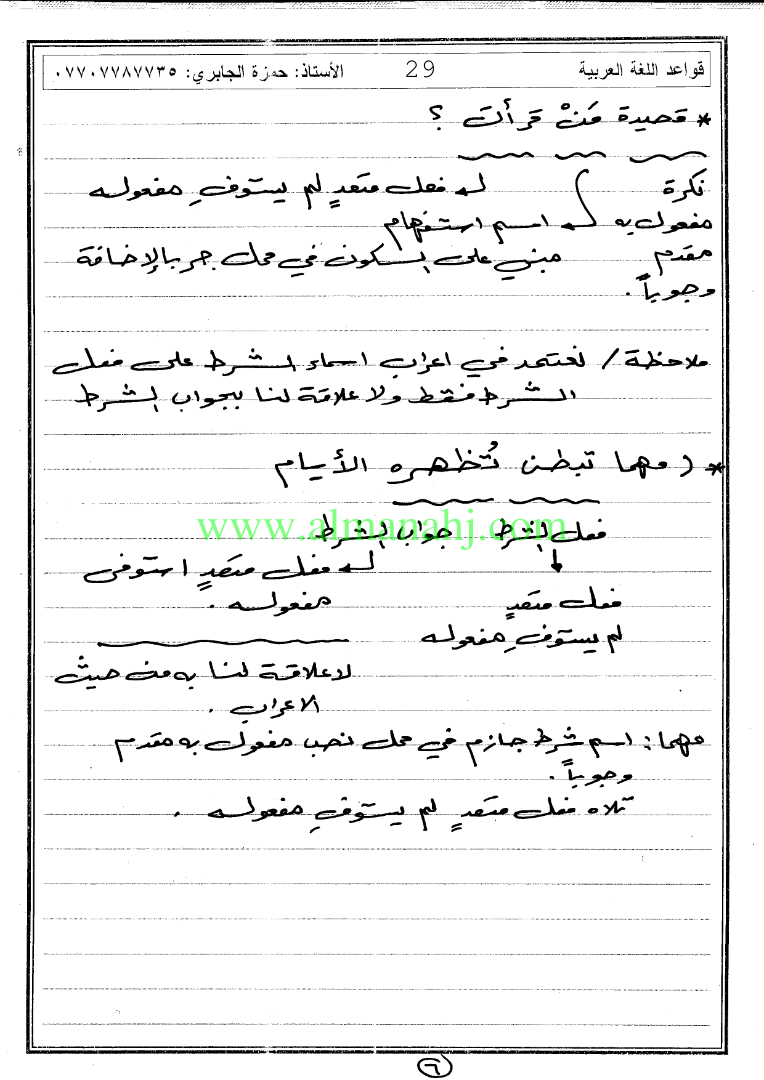 قواعد اللغة العربية 29 الأستاذ: حمزة الجابري: ٠٧٧٠٧٧٨٧٧٣٥
* قصيدة مَنْ قرأت ؟
نكرة فعل متعدٍ لم يستوفِ مفعوله
مفعول به اسم استفهام
مقدم مبني على السكون في محل جر بالإضافة
وجوباً .
ملاحظة / نعتمد في اعراب اسماء الشرط على فعل
الشرط فقط ولا علاقة لنا بجواب الشرط
* ( مهما تبطن تُظهره الأيام
www.almanahj.com
فعل الشرط جواب الشرط
فعل متعدٍ استوفى
فعل متعدٍ مفعوله .
لم يستوفِ مفعوله
لا علاقة لنا به من حيث
الاعراب .
مهما : اسم شرط جازم في محل نصب مفعول به مقدم
وجوباً .
تلاه فعل متعدٍ لم يستوفِ مفعوله .
٦